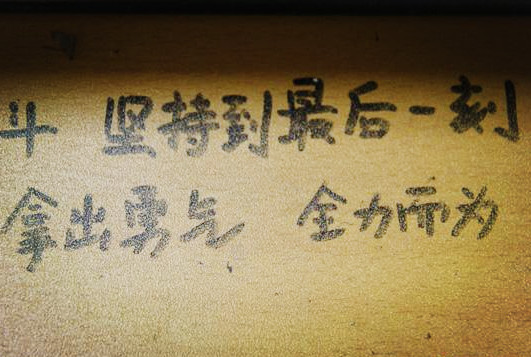 斗 坚持到最后一刻
拿出勇气 全力而为